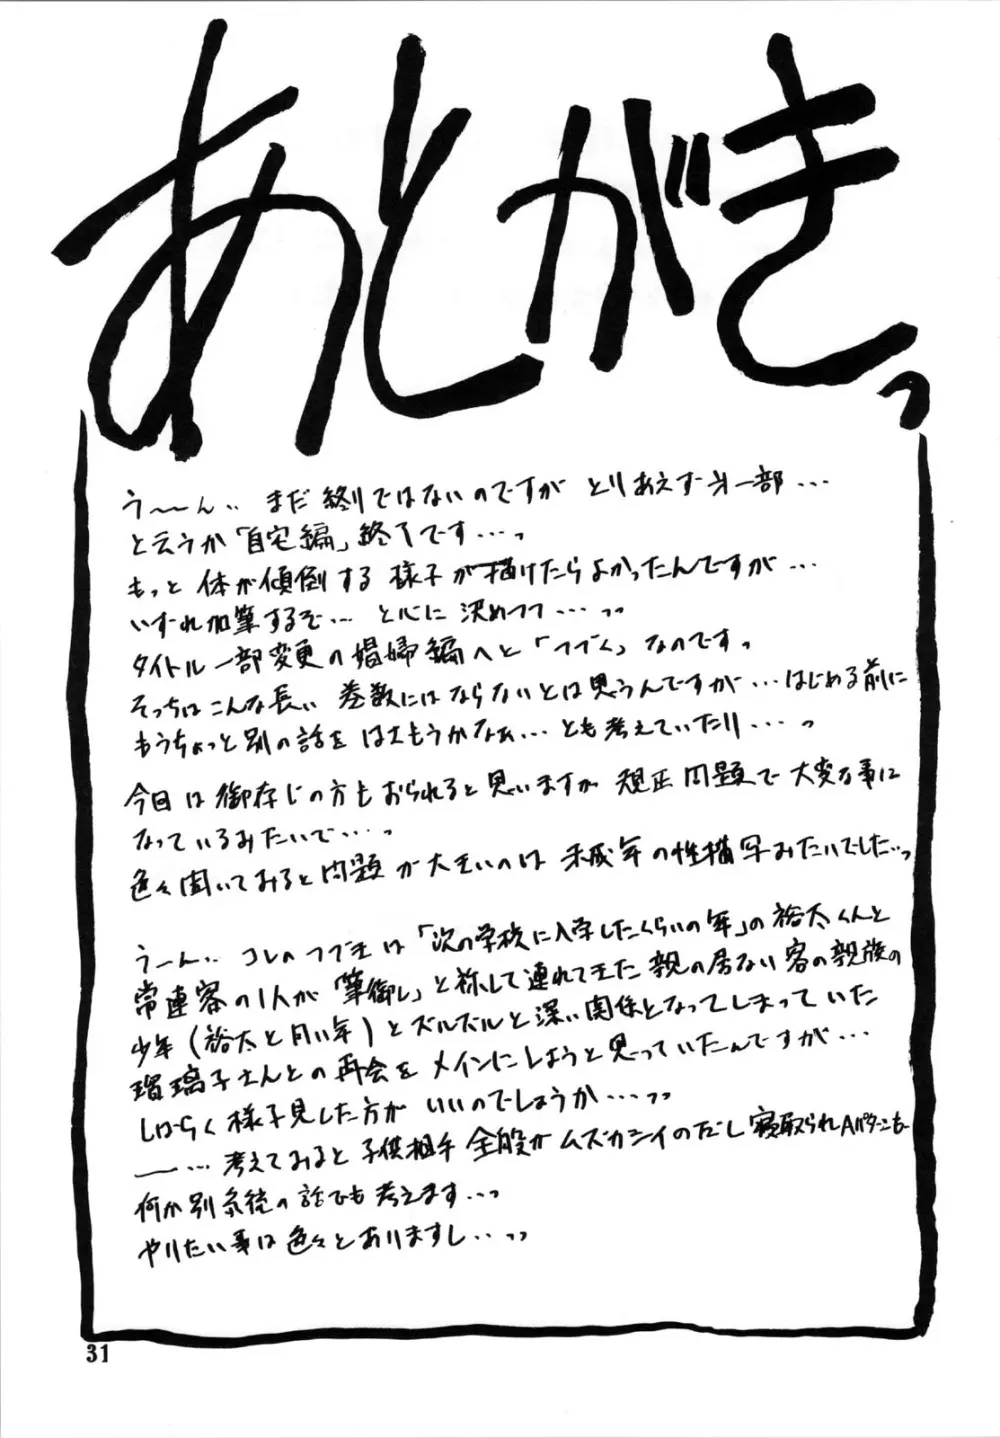 あとがきっ
う〜〜ん‥ まだ終りではないのですが とりあえず第一部…
と云うか「自宅編」終了です…っ
もっと 体が傾倒する 様子が描けたらよかったんですが…
いずれ加筆するぞ… と心に 決めつつ…っっ
タイトル一部変更の娼婦編へと「つづく」なのです。
そっちはこんな長い 巻数にはならないとは思うんですが…はじめる前に
もうちょっと別の話をはさもうかなぁ…とも考えていたり…っ
今日は御存じの方もおられると思いますが 規正問題で大変な事に
なっているみたいで…っ
色々聞いてみると問題が大きいのは 未成年の性描写みたいでした‥っ
うーん‥ コレのつづきは「次の学校に入学したくらいの年」の裕太くんと
常連客の1人が「筆御し」と称して連れてきた親の居ない客の親族の
少年(裕太と同い年)とズルズルと深い関係となってしまっていた
瑠璃子さんとの再会をメインにしようと思っていたんですが…
しばらく様子見した方がいいのでしょうか…っっ
――… 考えてみると子供相手全般がムズカシイのだし寝取られAパターンも‥
何か別系統の話でも考えます…っ
やりたい事は色々とありますし‥っっ
31